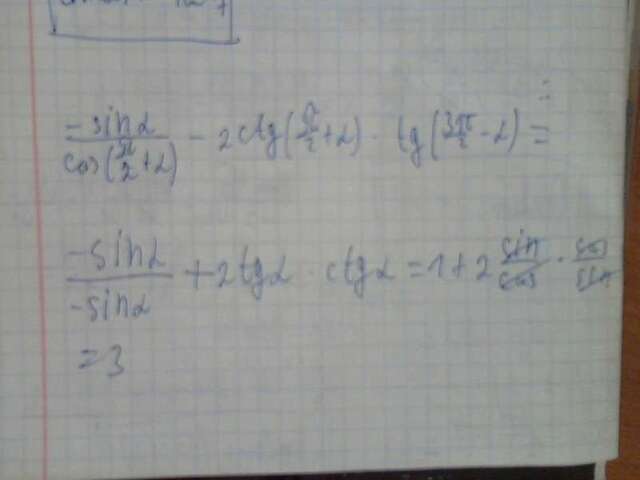 -sinα/cos(π/2+α) - 2ctg(π/2+α) · tg(3π/2-α) =
-sinα/-sinα + 2tgα · ctgα = 1 + 2 sin/cos · cos/sin
= 3